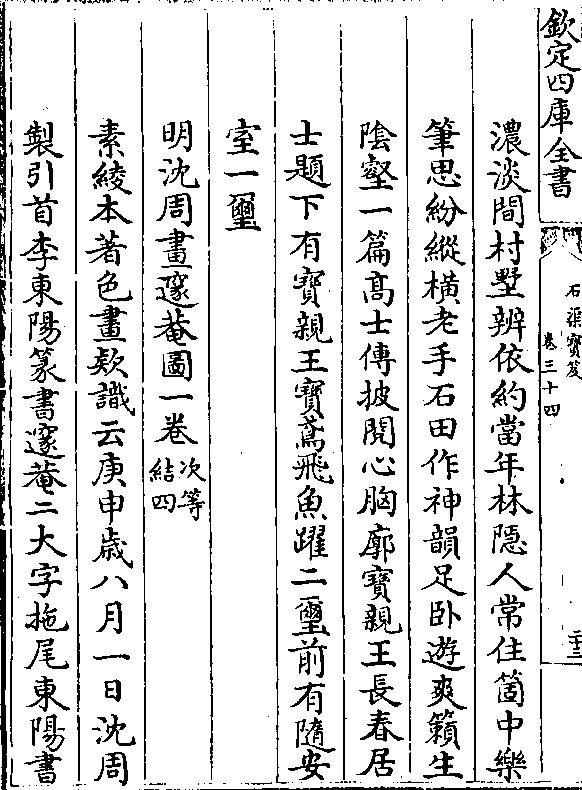 欽定四庫全書
石渠寶笈
卷三十四
二十三
濃淡間村墅辨依約當年林隠人常住箇中樂
筆思紛縱橫老手石田作神韻足卧遊爽籟生
隂壑一篇髙士傳披閲心胸廓寶親王長春居
士題下有寶親王寶鳶飛魚躍二璽前有隨安
室一璽
明沈周畫邃菴圖一卷次等結四
素綾本著色畫欵識云庚申歳八月一日沈周
製引首李東陽篆書邃菴二大字拖尾東陽書